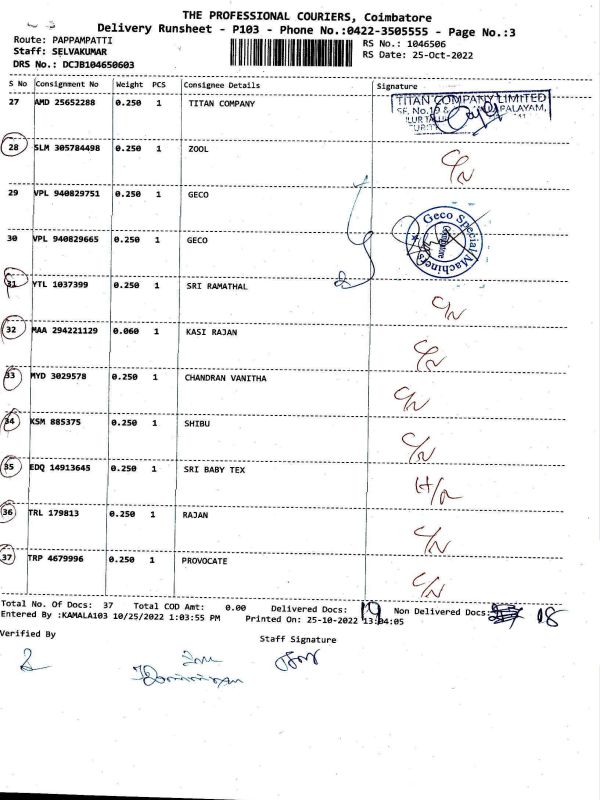 THE PROFESSIONAL COURIERS, Coimbatore
Delivery Runsheet - P103 - Phone No.:0422-3505555 - Page No.:3
Route: PAPPAMPATTI
RS No.: 1046506
Staff: SELVAKUMAR
RS Date: 25-Oct-2022
DRS No.: DCJB104650603
S No Consignment No Weight PCS Consignee Details Signature
27 AMD 25652288 0.250 1 TITAN COMPANY
TITAN COMPANY LIMITED
28 SLM 305784498 0.250 1 ZOOL C/N
29 VPL 940829751 0.250 1 GECO
Geco Special Machiners
Coimbatore
30 VPL 940829665 0.250 1 GECO
31 YTL 1037399 0.250 1 SRI RAMATHAL C/N
32 MAA 294221129 0.060 1 KASI RAJAN C/N
33 MYD 3029578 0.250 1 CHANDRAN VANITHA C/N
34 KSM 885375 0.250 1 SHIBU C/N
35 EDQ 14913645 0.250 1 SRI BABY TEX
36 TRL 179813 0.250 1 RAJAN C/N
37 TRP 4679996 0.250 1 PROVOCATE C/N
Total No. Of Docs: 37 Total COD Amt: 0.00 Delivered Docs: 19 Non Delivered Docs: 18
Entered By :KAMALA103 10/25/2022 1:03:55 PM Printed On: 25-10-2022 13:04:05
Verified By
Staff Signature